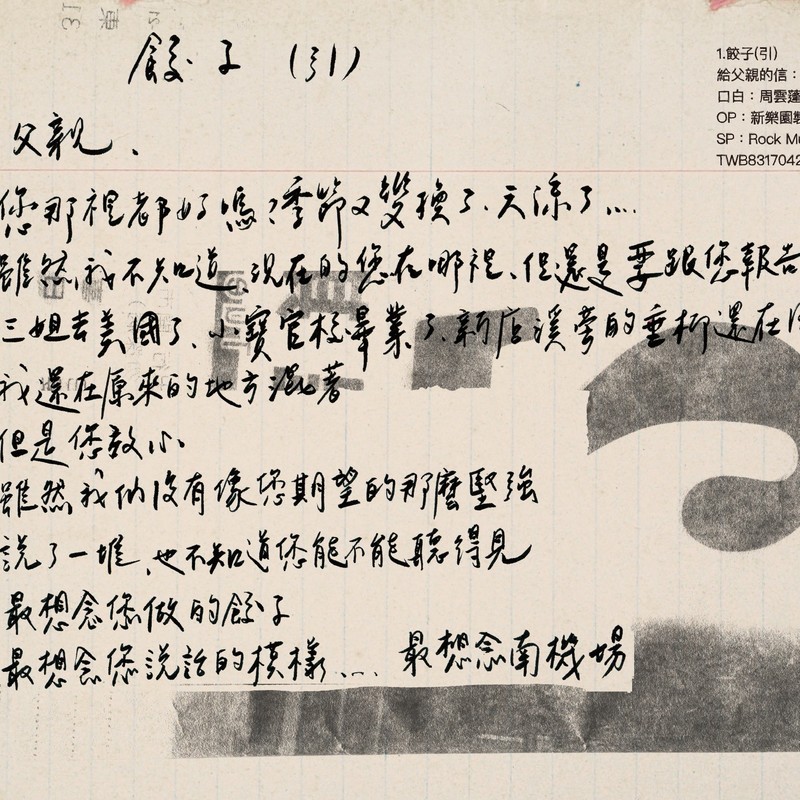 餃子（引）
父親、
您那裡都好嗎？季節又變換了、天涼了...
雖然我不知道、現在的您在哪裡、但還是要跟您報告
三姐去美國了、小寶官校畢業了、新店溪旁的垂柳還在
我還在原來的地方混著
但是您放心
雖然我们沒有像您期望的那麼堅強
說了一堆、也不知道您能不能聽得見
最想念您做的餃子
最想念您說話的模樣.... 最想念南機場
1.餃子(引)
給父親的信：
口白：周雲蓬
OP：新樂園製
SP：Rock Mu
TWB8317042